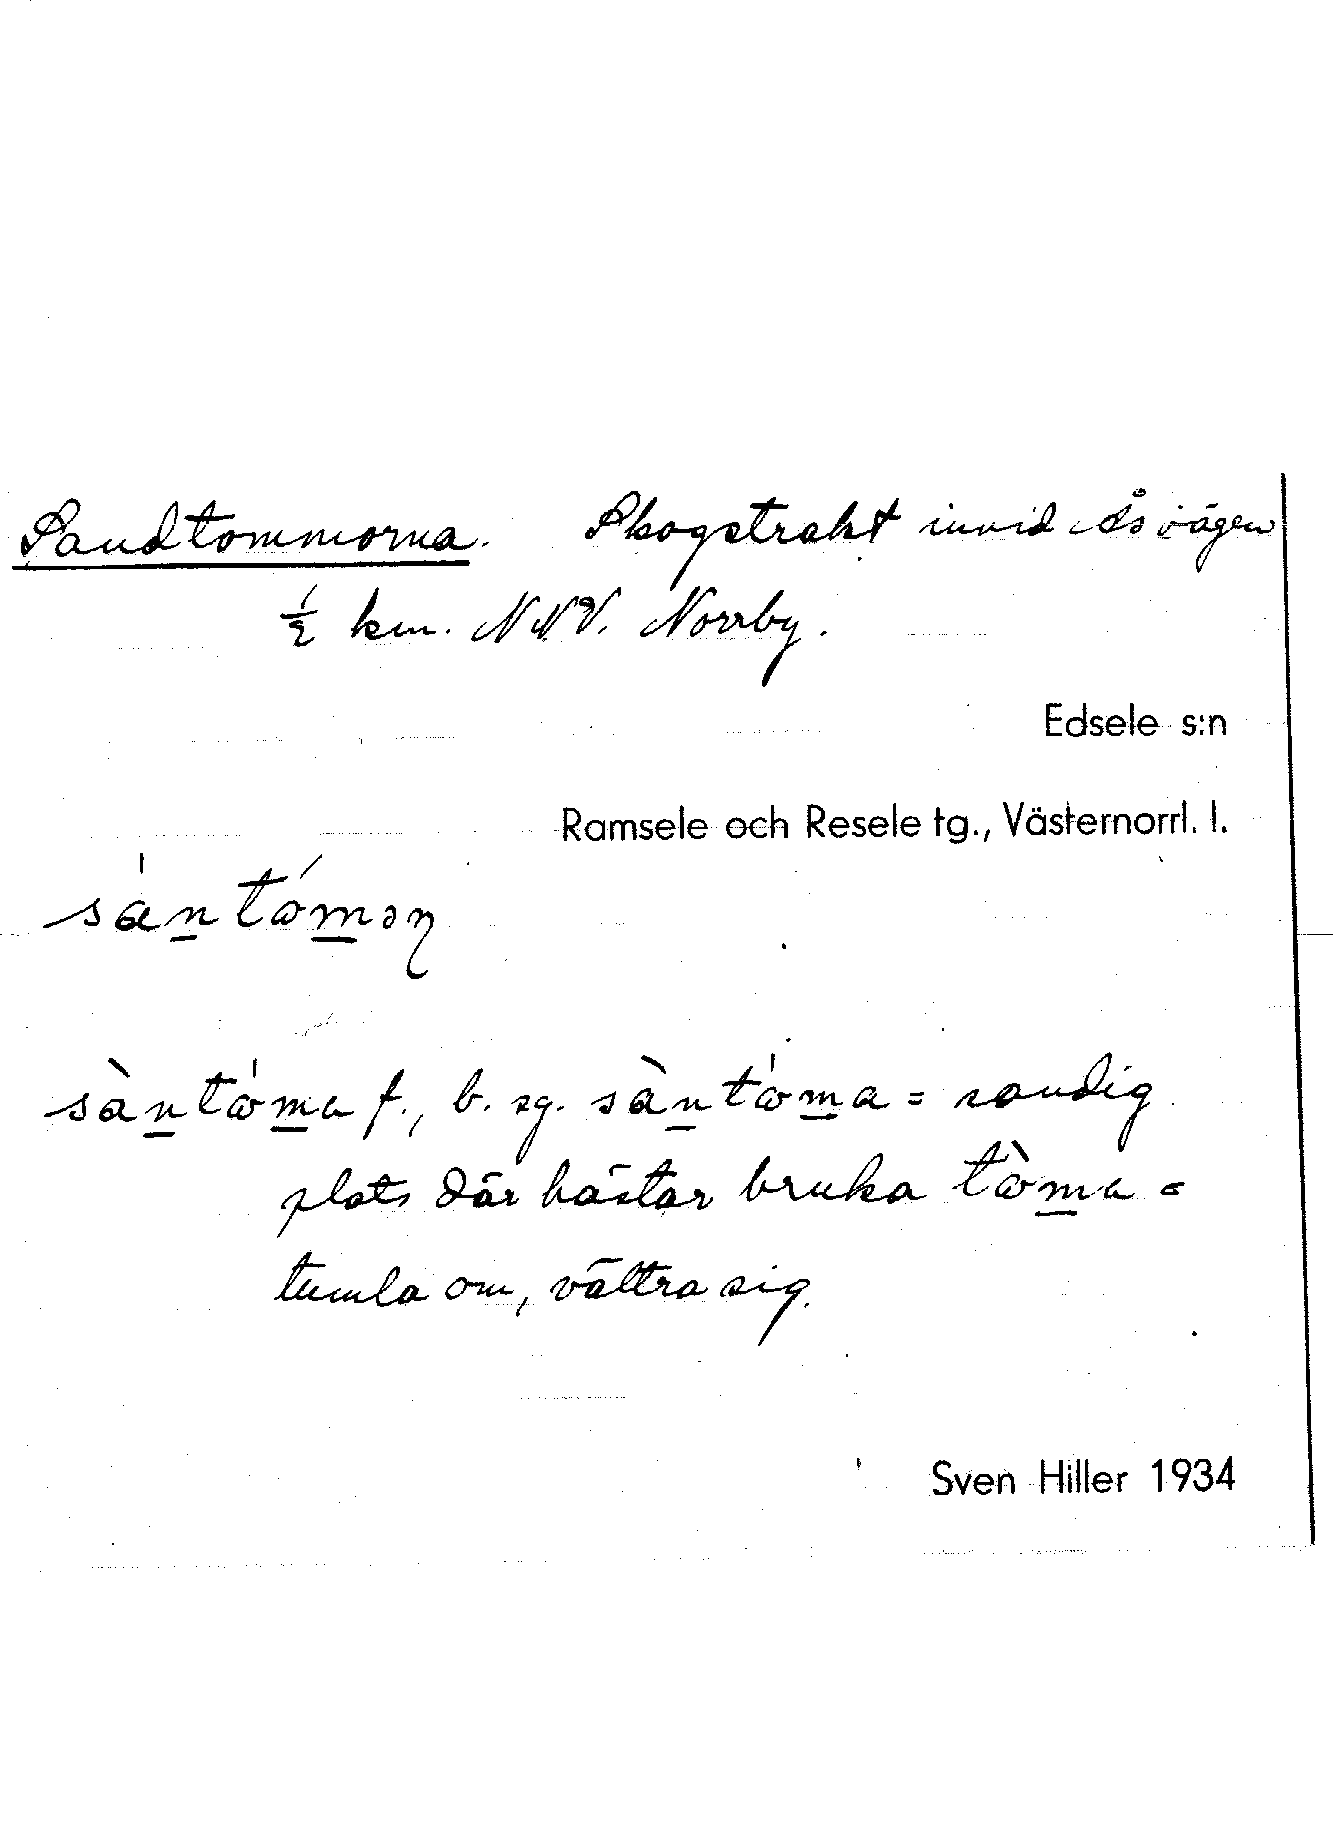 Sandtommorna. Skogstrakt invid Åsvägen
½ km. N.N.V. Norrby.
Edsele s:n
Ramsele och Resele tg., Västernorrl. l.
sàn̲tóm̲əɳ
sàn̲tóm̲a f., b. sg. sàn̲tóm̲a = sandig
plats där hästar bruka tòm̲a =
tumla om, vältra sig.
Sven Hiller 1934